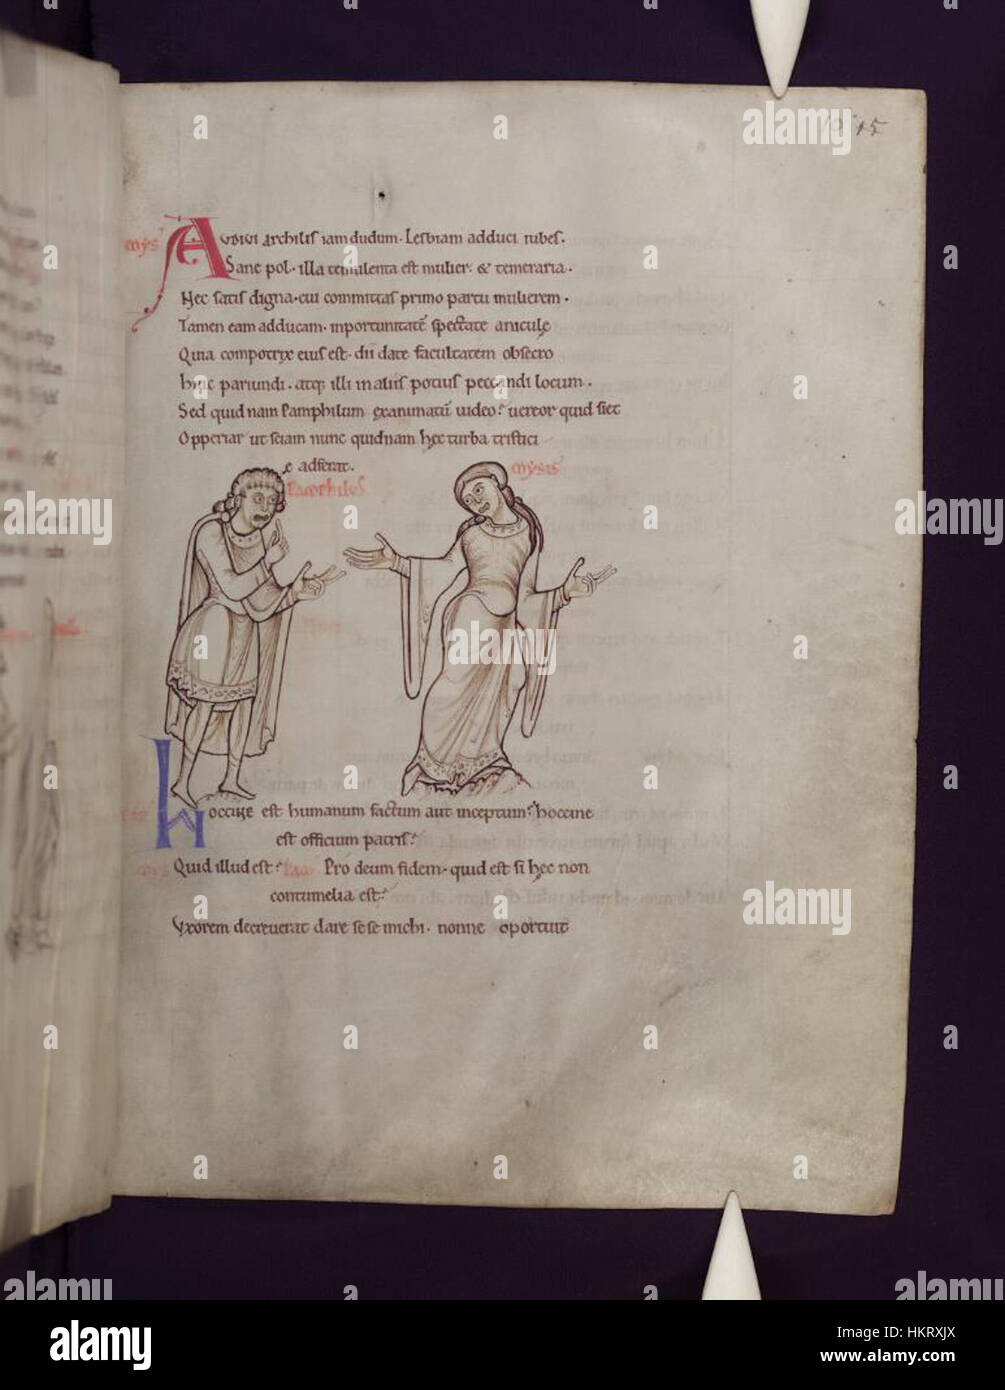 15
mys
AUDIUI archilis iamdudum. Lesbiam adduci iubes.
Sane pol. illa temulenta est mulier. & temeraria.
Nec satis digna. cui committas primo partu mulierem.
Tamen eam adducam. inportunitatē spectate anicule
Quia compotrix eius est. dii date facultatem obsecro
huic pariundi. atq; illi in aliis potius peccandi locum.
Sed quid nam Pamphilum exanimatū uideo? uereor quid siet
Opperiar ut sciam nunc quidnam hec turba tristici
e adferat.
Pamphilus
mysis
Hoccine est humanum factum aut inceptum? hoccine
est officium patris?
mys Quid illud est? Pam Pro deum fidem. quid est si hec non
contumelia est?
Uxorem decreuerat dare sese michi. nonne oportuit
alamy
a
alamy
Image ID: HKRXJX
www.alamy.com